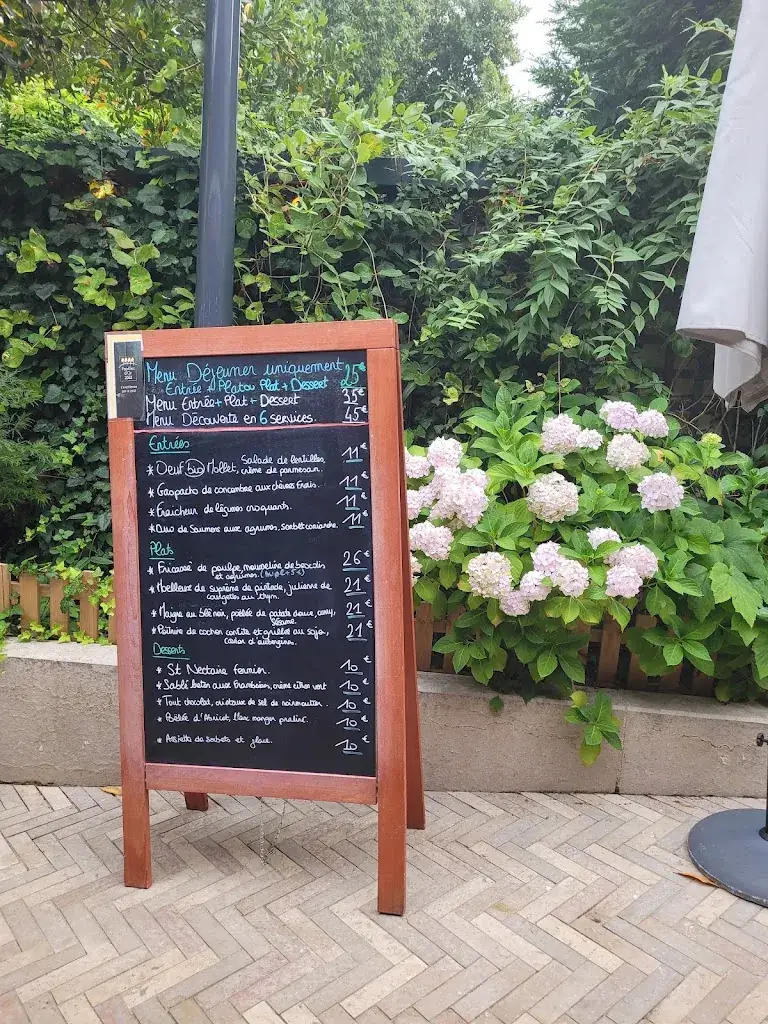 Menu Déjeuner uniquement
Entrée + Plat ou Plat + Dessert 25€
Menu Entrée + Plat + Dessert 35€
Menu Découverte en 6 services. 45€
Entrées
* Oeuf bio Mollet, Salade de lentilles, crème de parmesan. 11€
* Gaspacho de concombre aux chèvres frais. 11€
* Fraicheur de légumes croquants. 11€
* Duo de Saumons aux agrumes, sorbet coriandre. 11€
Plats
* Fricassé de poulpe, mousseline de brocolis
et agrumes (suppl + 5€) 26€
* Moelleux de suprème de pintade, julienne de
courgettes au thym. 21€
* Maigre au blé noir, poêlée de patate douce, curry,
Sésame. 21€
* Poitrine de cochon confite et grillée au soja,
caviar d'aubergine. 21€
Desserts
* St Nectaire fermier. 10€
* Sablé breton aux framboises, crème citron vert 10€
* Tout chocolat, cristaux de sel de noirmoutier. 10€
* Poêlée d'Abricot, blanc manger praliné. 10€
* Assiette de sorbets et glace. 10€